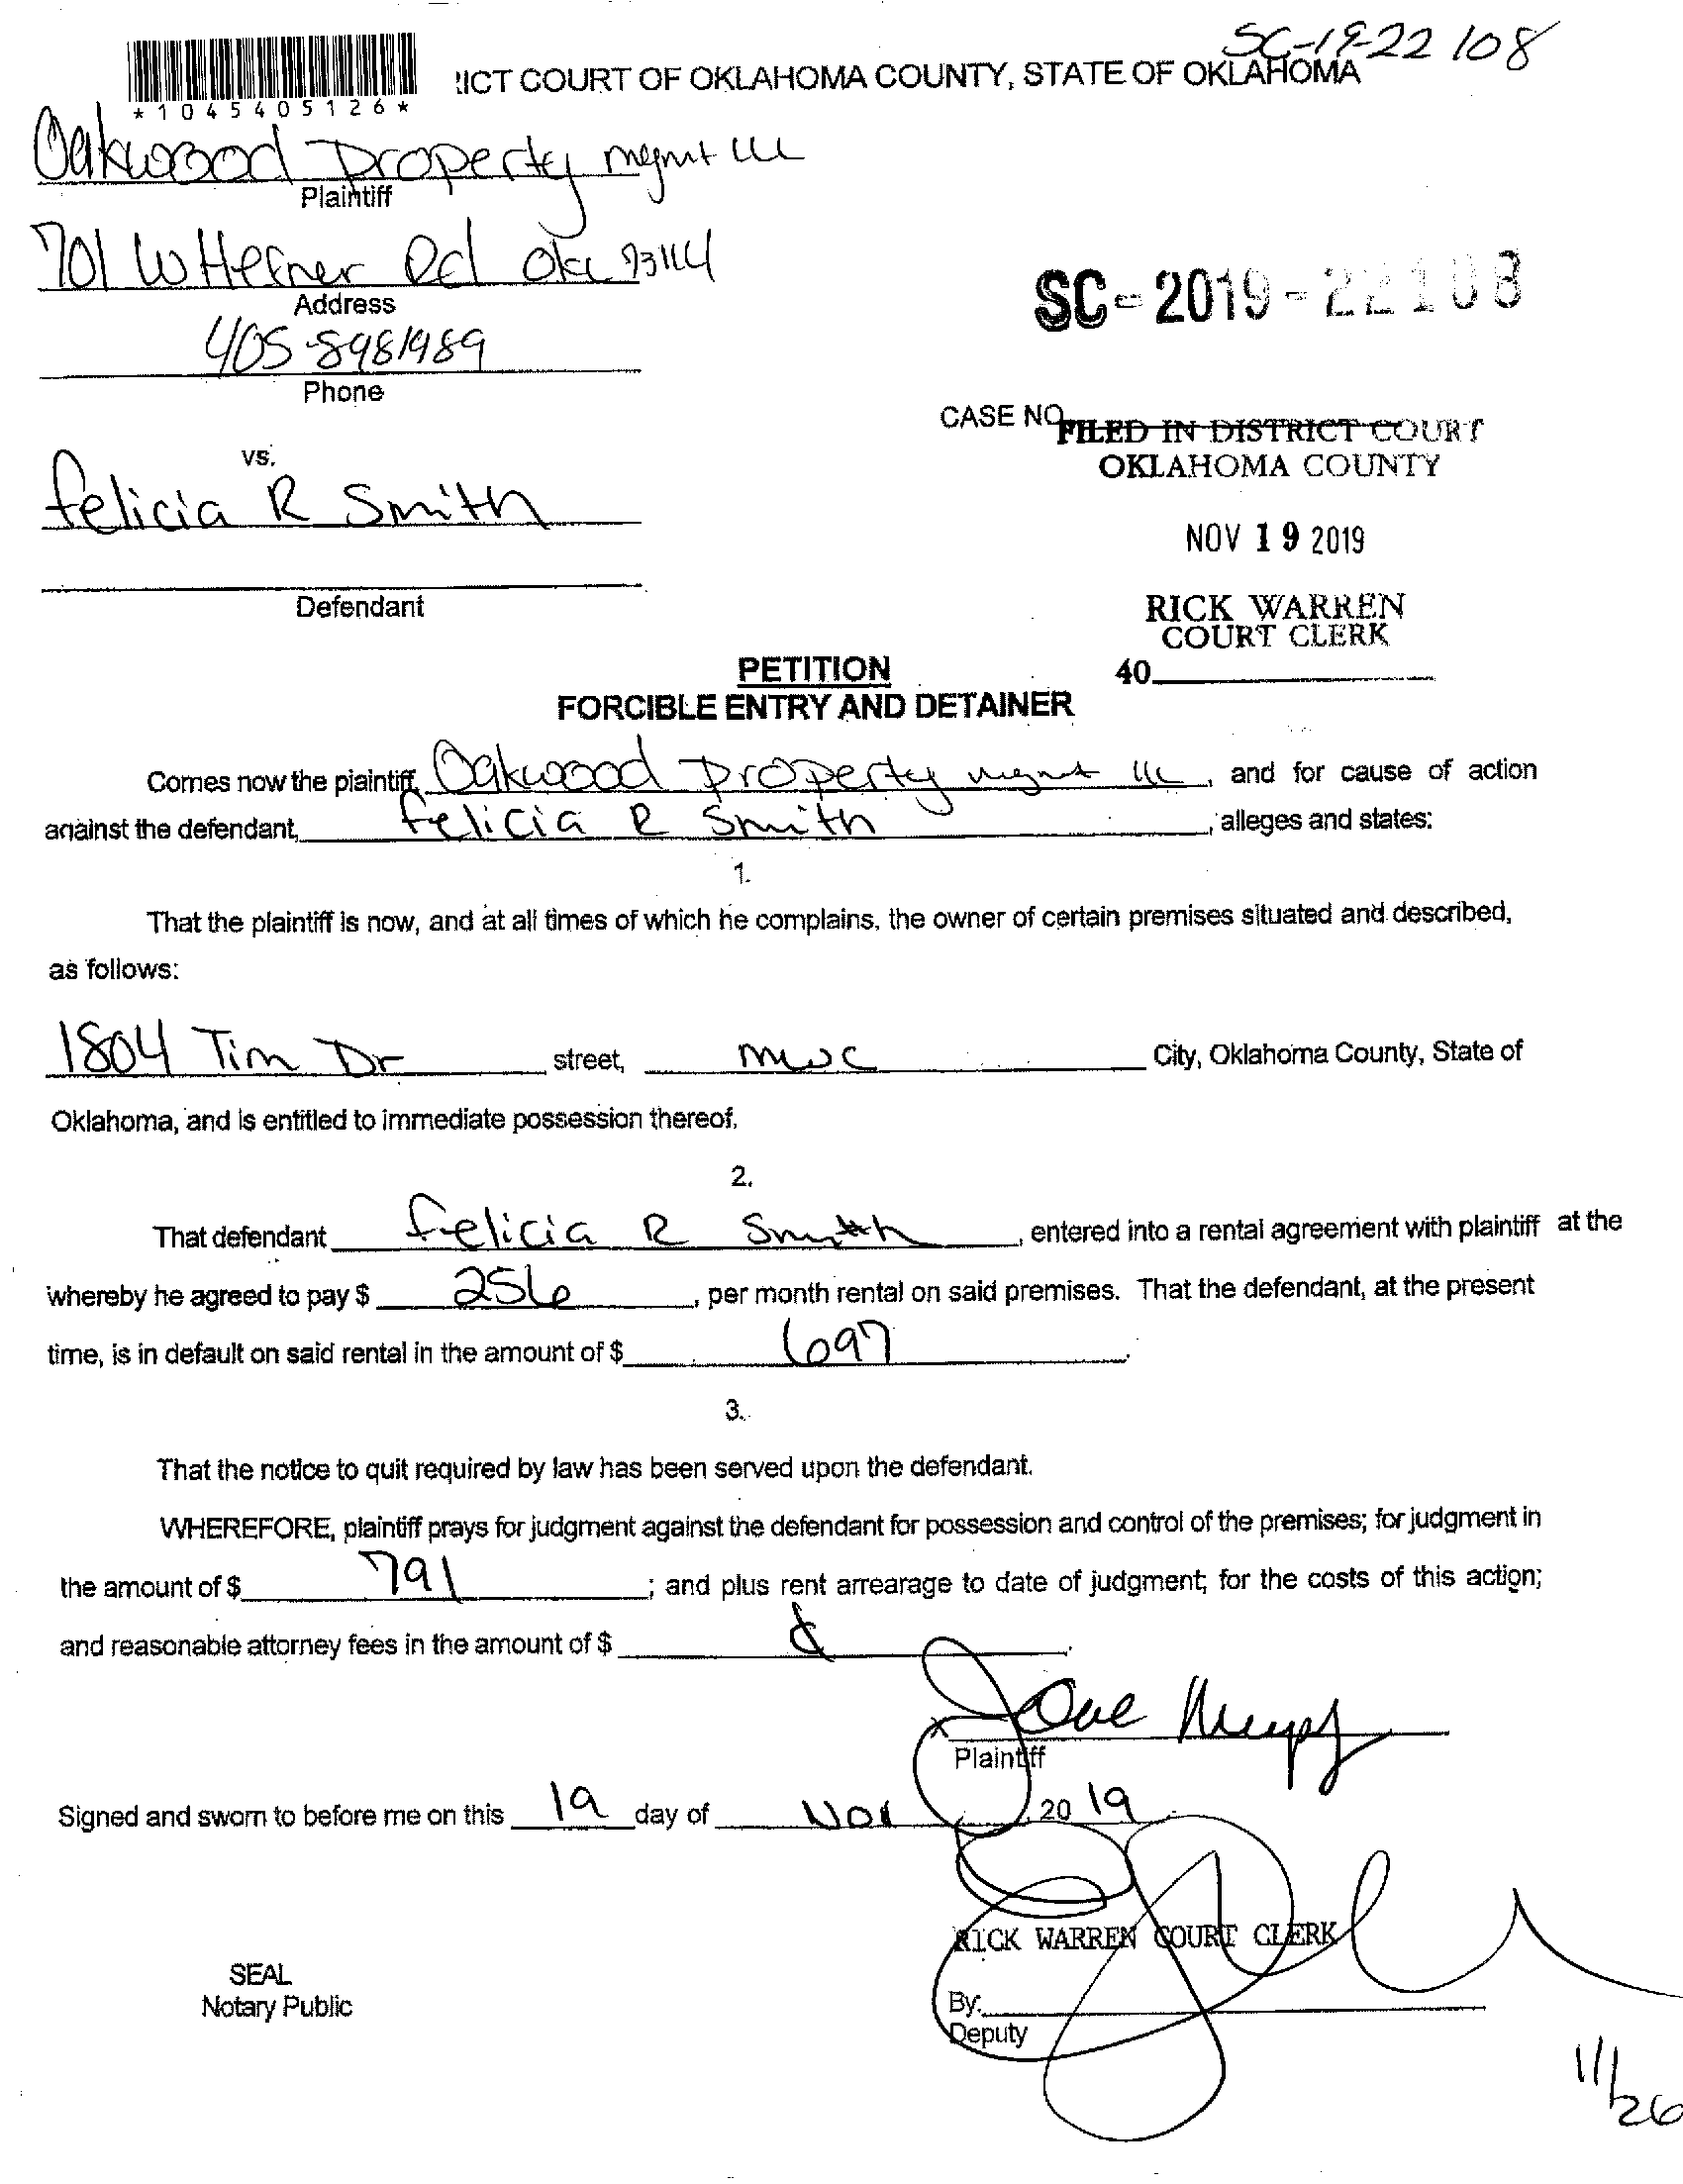 SC-19-22108
!ICT COURT OF OKLAHOMA COUNTY, STATE OF OKLAHOMA
*1045405126*
Oakwood Property mgmt LLC
Plaintiff
701 W Hefner Rd OKC 73114
Address
SC-2019-22108
405-8981989
Phone
CASE NO
FILED IN DISTRICT COURT
OKLAHOMA COUNTY
vs.
Felicia R Smith
NOV 19 2019
Defendant
RICK WARREN
COURT CLERK
40
PETITION
FORCIBLE ENTRY AND DETAINER
Comes now the plaintiff, Oakwood Property mgmt LLC, and for cause of action
against the defendant, Felicia R Smith, alleges and states:
1.
That the plaintiff is now, and at all times of which he complains, the owner of certain premises situated and described,
as follows:
1804 Tim Dr street, MWC City, Oklahoma County, State of
Oklahoma, and is entitled to immediate possession thereof.
2.
That defendant Felicia R Smith, entered into a rental agreement with plaintiff at the
whereby he agreed to pay $ 256, per month rental on said premises. That the defendant, at the present
time, is in default on said rental in the amount of $ 697.
3.
That the notice to quit required by law has been served upon the defendant.
WHEREFORE, plaintiff prays for judgment against the defendant for possession and control of the premises; for judgment in
the amount of $ 791; and plus rent arrearage to date of judgment; for the costs of this action;
and reasonable attorney fees in the amount of $
x
Plaintiff
Signed and sworn to before me on this 19 day of Nov, 20 19
RICK WARREN COURT CLERK
SEAL
Notary Public
By:
Deputy
11/26